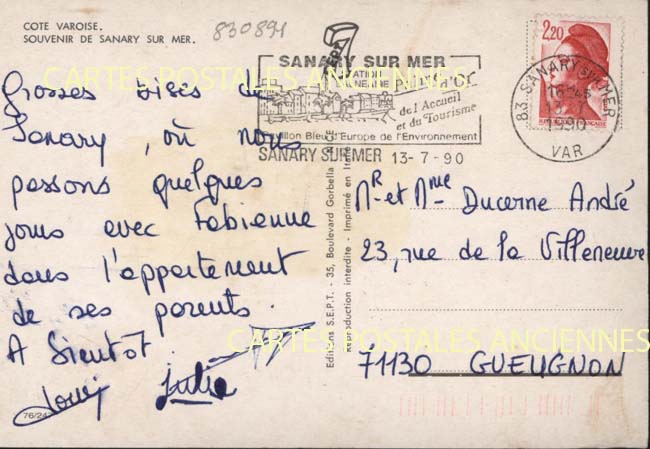 COTE VAROISE.
SOUVENIR DE SANARY SUR MER.
830891
Grosses bises de
Sanary, où nous
passons quelques
jours avec Fabienne
dans l'appartement
de ses parents.
A bientôt.
Julie
76/24
Editions S.E.P.T. - 35, Boulevard Gorbella
Reproduction interdite - Imprimé en
SANARY SUR MER
de l'Accueil
et du Tourisme
Pavillon Bleu d'Europe de l'Environnement
SANARY SUR MER 13-7-90
2,20
83 SANARY SUR MER
13-7
1990
VAR
Mr et Mme Ducerne André
23, rue de la Villeneuve
71130 GUEUGNON
CARTES POSTALES ANCIENNES
CARTES POSTALES ANCIENNES